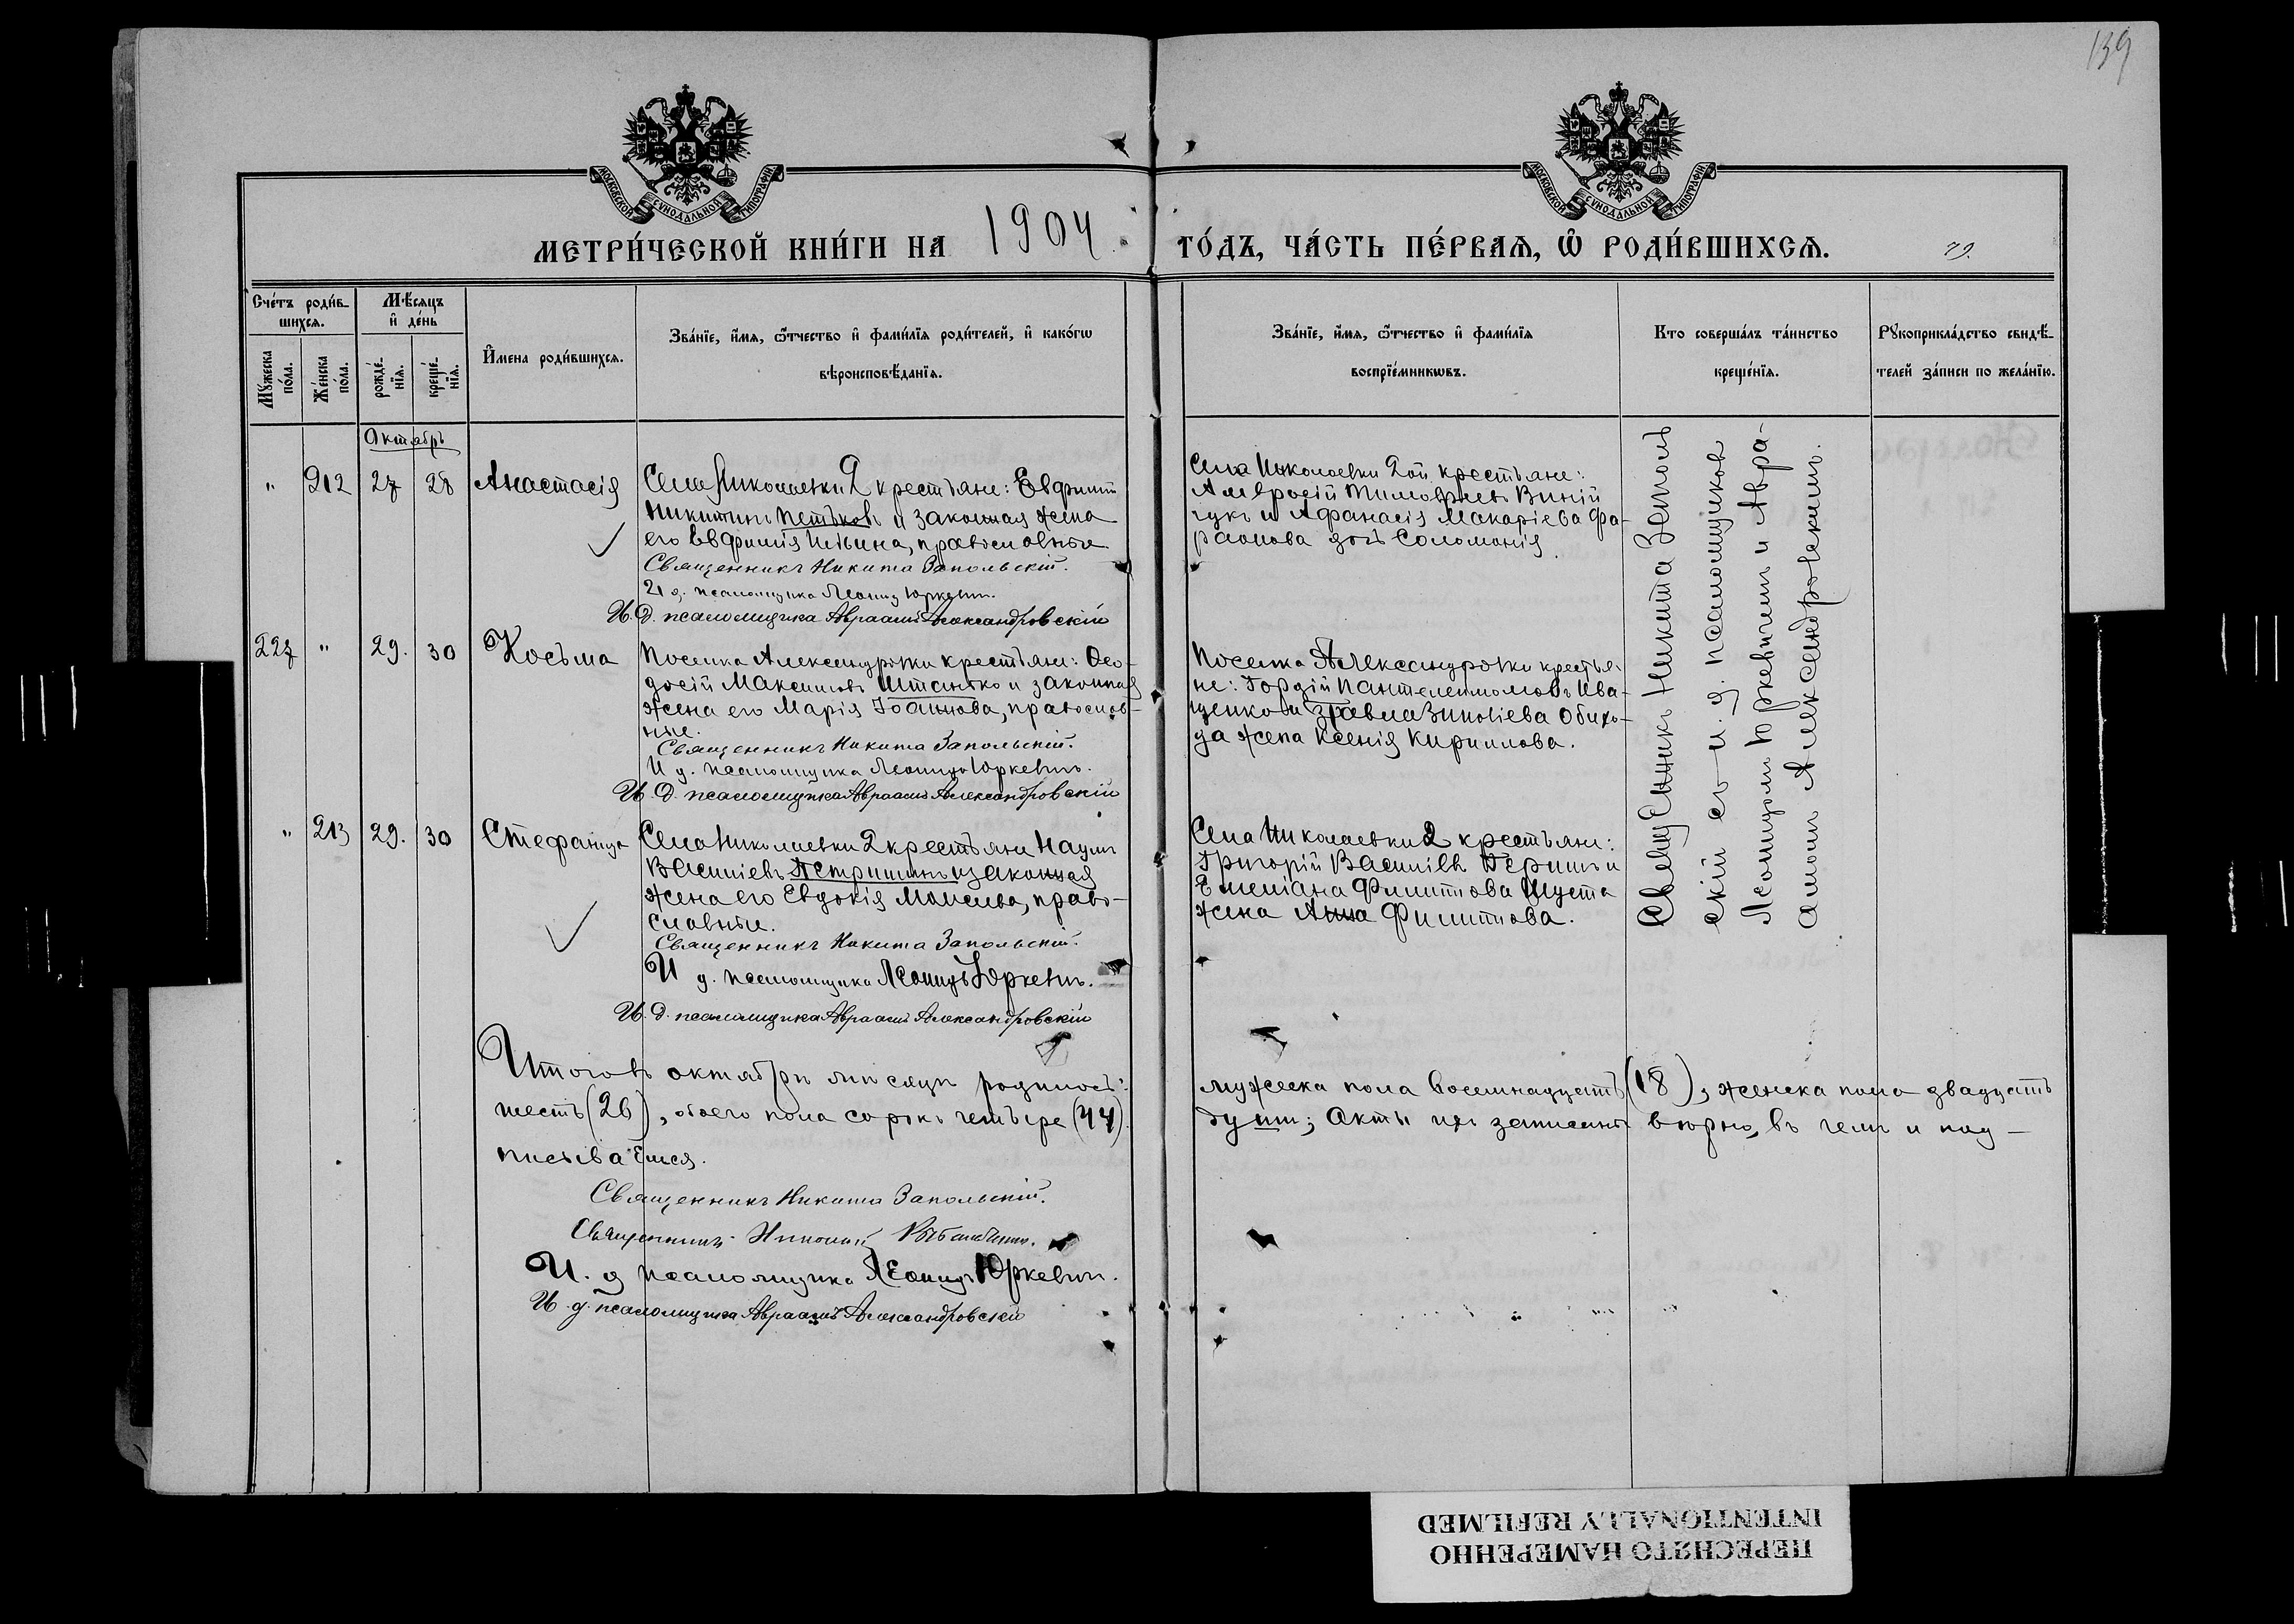 139
МОСКОВСКОЙ СѴНОДАЛЬНОЙ ТИПОГРАФІИ
МОСКОВСКОЙ СѴНОДАЛЬНОЙ ТИПОГРАФІИ
МЕТРИ́ЧЕСКОЙ КНИ́ГИ НА 1904 ГО́ДЪ, ЧА́СТЬ ПЕ́РВАЯ, Ѡ҆ РОДИ́ВШИХСЯ. 79.
Сче́тъ роди́в-
шихся.
Му́жеска
по́ла.
Же́нска
по́ла.
Мѣ́сяцъ
и҆ де́нь
рожде́-
нїя.
креще́-
нїя.
И҆мена роди́вшихся.
Зва́нїе, и҆́мя, ѻ҆́тчество и҆ фами́лїя роди́телей, и҆ како́гѡ
вѣроисповѣ́данїя.
Зва́нїе, и҆́мя, ѻ҆́тчество и҆ фами́лїя
воспрїе́мникѡвъ.
Кто соверша́лъ та́инство
креще́нїя.
Рꙋкоприкла́дство свидѣ́-
телей за́писи по жела́нїю.
Октябрь
" 212 27 28 Анастасія
Села Николаевки 2 крестьяне: Евфимій
Никитинъ Петьковъ и законная жена
его Евфимія Ильина, православные
Священникъ Никита Запольскій.
И д. псаломщика Леонидъ Юркевичъ.
И. д. псаломщика Авраамъ Александровскій
Села Николаевки 2ой крестьяне:
Амвросій Тимофеевъ Виній-
чукъ и Афанасія Макаріева Фа-
раонова дочь Соломонія
227 " 29. 30 Косьма
Поселка Александровки крестьяне: Ѳео-
досій Максимовъ Штанько и законная
жена его Марія Іоаннова, православ-
ные.
Священникъ Никита Запольскій.
И д. псаломщика Леонидъ Юркевичъ.
И. д. псаломщика Авраамъ Александровскій
Поселка Александровки крестья-
не: Гордій Пантелеимоновъ Ива-
щенко и Зиновіева Обихо-
да жена Ксенія Кириллова.
" 213 29. 30 Стефанида
Села Николаевки 2 крестьяне Наумъ
Василіевъ и законная
жена его Евдокія Моисеева, право-
славные.
Священникъ Никита Запольскій.
И д. псаломщика Леонидъ Юркевичъ.
И. д. псаломщика Авраамъ Александровскій
Села Николаевки 2 крестьяне:
Григорій Василіевъ и
Емеліана Филиппова Шуста
жена Анна Филиппова.
Священникъ Никита Заполь-
скій съ и. д. псаломщиковъ
Леонидомъ Юркевичемъ и Авра-
амомъ Александровскимъ.
Итого въ октябрѣ мѣсяцѣ родилось: мужеска пола восемнадцать (18), женска пола двадцать
шесть (26), обоего пола сорокъ четыре (44) душъ; Акты ихъ записаны вѣрно, въ чемъ и под-
писываемся.
Священникъ Никита Запольскій.
Священникъ Николай
И. д псаломщика Леонидъ Юркевичъ.
И. д. псаломщика Авраамъ Александровскій
ПЕРЕСНЯТО НАМЕРЕННО
INTENTIONALLY REFILMED